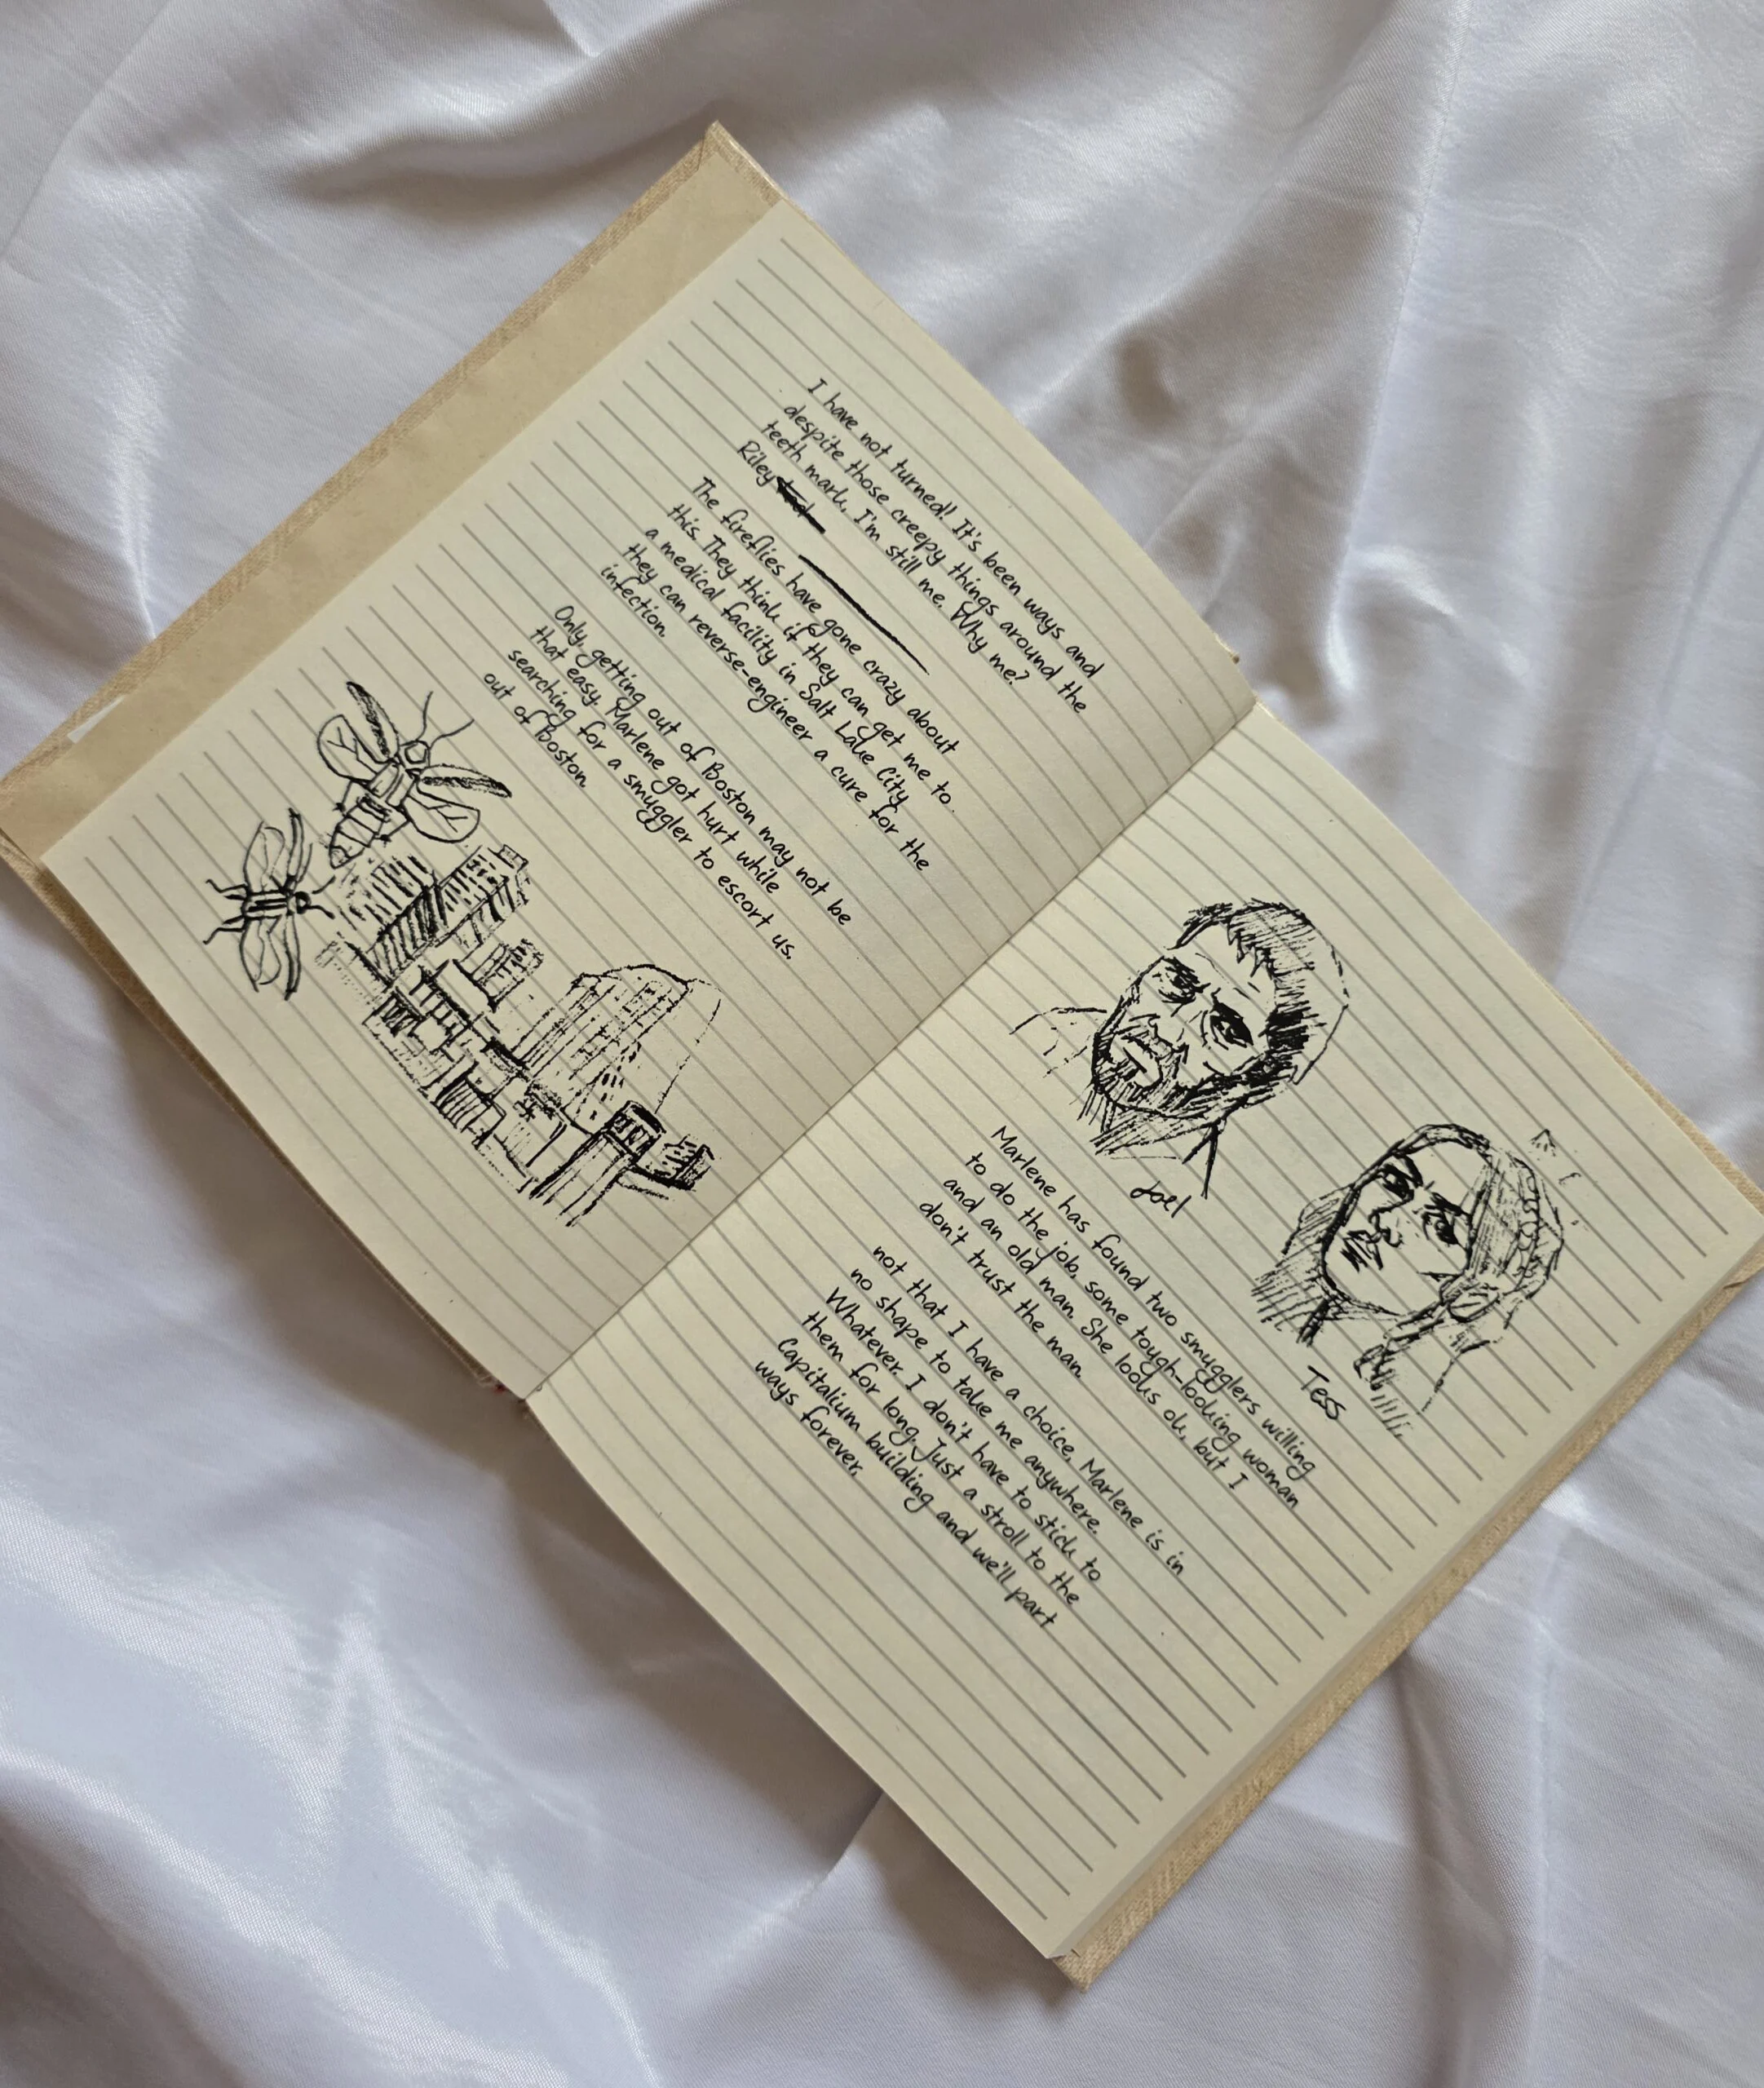 I have not turned! It's been ways and
despite those creepy things around the
teeth mark, I'm still me. Why me?
Riley
The fireflies have gone crazy about
this. They think if they can get me to
a medical facility in Salt Lake City
they can reverse-engineer a cure for the
infection.
Only, getting out of Boston may not be
that easy. Marlene got hurt while
searching for a smuggler to escort us.
out of Boston.
Joel
Tess
Marlene has found two smugglers willing
to do the job, some tough-looking woman
and an old man. She looks ok, but I
don't trust the man.
not that I have a choice, Marlene is in
no shape to take me anywhere.
Whatever. I don't have to stick to
them for long. Just a stroll to the
Capitalium building and we'll part
ways forever.